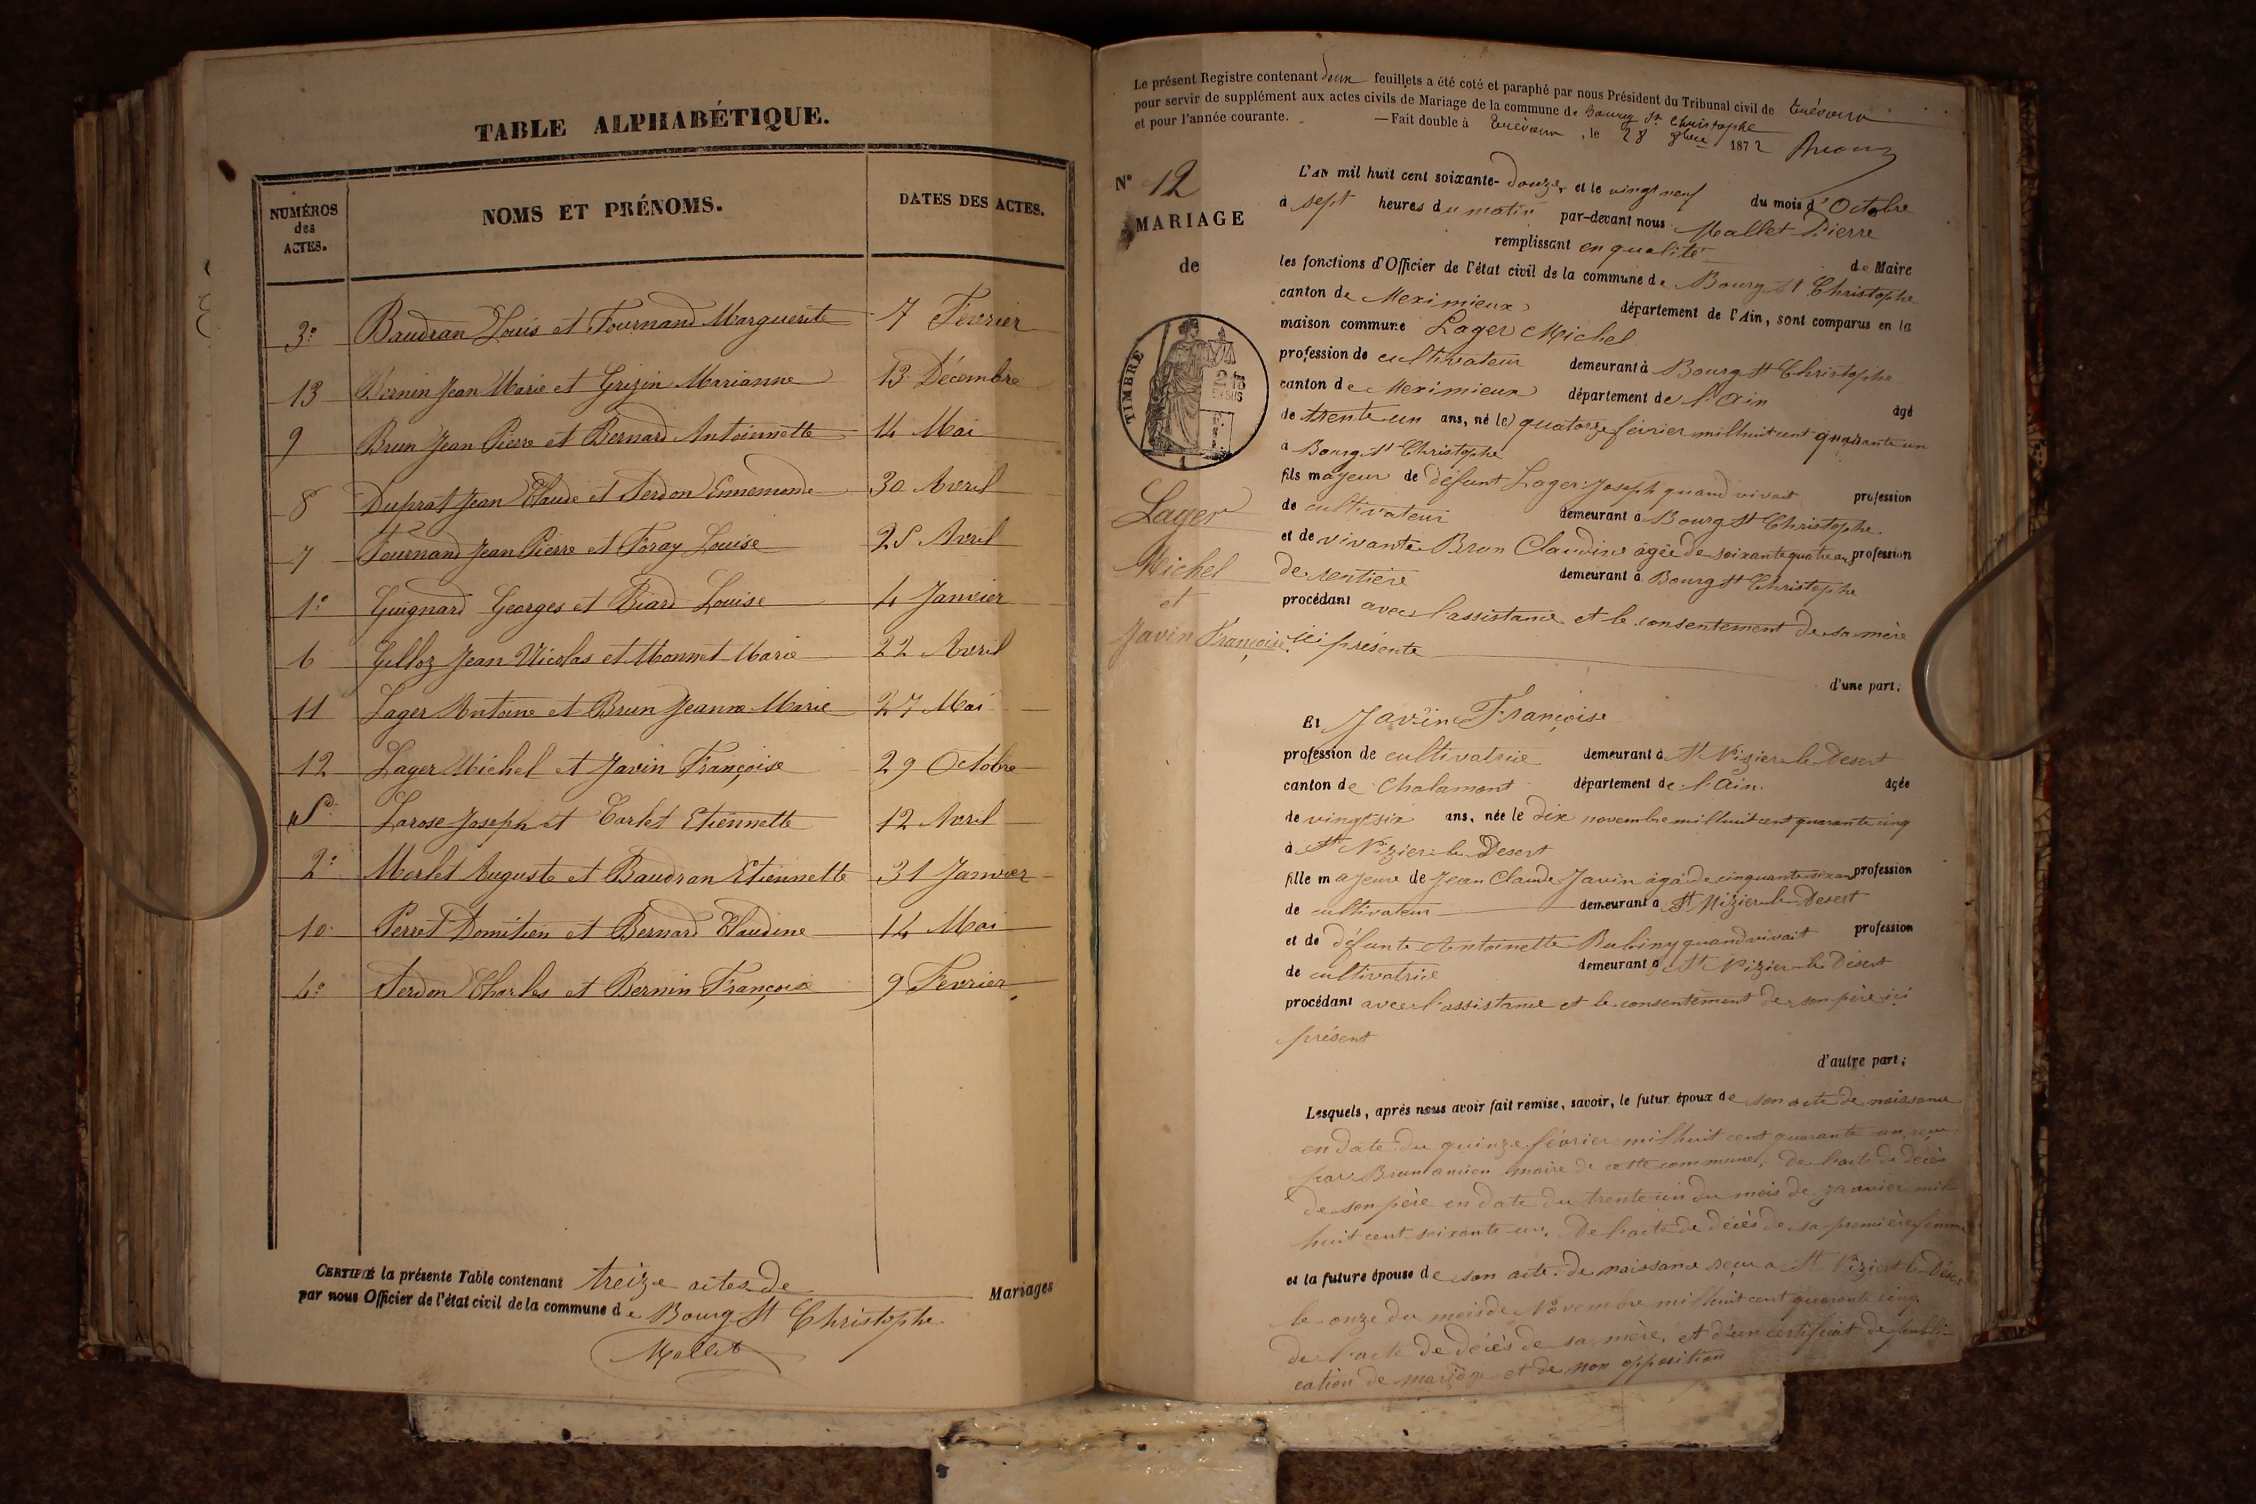 TABLE ALPHABÉTIQUE.
NUMÉROS des ACTES.
NOMS ET PRÉNOMS.
DATES DES ACTES.
3° Baudran Louis et Fournand Marguerite 7 Février
13 Bernin Jean Marie et Grizin Marianne 13 Décembre
9 Brun Jean Pierre et Bernard Antoinette 14 Mai
8 Duprat Jean Claude et Serdon Ennemonde 30 Avril
7 Fournand Jean Pierre et Foray Louise 25 Avril
1° Guignard Georges et Biard Louise 4 Janvier
6 Gelloz Jean Nicolas et Monnet Marie 22 Avril
11 Lager Antoine et Brun Jeanne Marie 27 Mai
12 Lager Michel et Javin Françoise 29 Octobre
5° Larose Joseph et Carlet Etiennette 12 Avril
2° Morlet Auguste et Baudran Etiennette 31 Janvier
10 Perret Domitien et Bernard Claudine 14 Mai
4° Serdon Charles et Bernin Françoise 9 Fevrier
CERTIFIÉ la présente Table contenant treize actes de Mariages
par nous Officier de l'état civil de la commune de Bourg St Christophe
Mallet
Le présent Registre contenant deux feuillets a été coté et paraphé par nous Président du Tribunal civil de Trévoux
pour servir de supplément aux actes civils de Mariage de la commune de Bourg St Christophe
et pour l'année courante. — Fait double à Trévoux, le 28 8bre 1872
N° 12
MARIAGE
de
TIMBRE
Lager
Michel
et
Javin Françoise.
L'AN mil huit cent soixante-douze, et le vingt neuf du mois d'Octobre
à sept heures du matin par-devant nous Mallet Pierre
remplissant en qualité de Maire
les fonctions d'Officier de l'état civil de la commune de Bourg St Christophe
canton de Meximieux département de l'Ain, sont comparus en la
maison commune Lager Michel
profession de cultivateur demeurant à Bourg St Christophe
canton de Meximieux département de l'Ain âgé
de trente un ans, né le quatorze février mil huit cent quarante un
à Bourg St Christophe
fils majeur de défunt Lager Joseph quand vivait profession
de cultivateur demeurant à Bourg St Christophe
et de vivante Brun Claudine âgée de soixante quatre ans profession
de rentière demeurant à Bourg St Christophe
procédant avec l'assistance et le consentement de sa mère
ici présente
d'une part;
Et Javin Françoise
profession de cultivatrice demeurant à St Nizier le Desert
canton de Chalamont département de l'Ain. âgée
de vingt six ans, née le dix novembre mil huit cent quarante cinq
à St Nizier le Desert
fille majeure de Jean Claude Javin âgé de cinquante six ans profession
de cultivateur demeurant à St Nizier le Desert
et de défunte Antoinette quand vivait profession
de cultivatrice demeurant à St Nizier le Desert
procédant avec l'assistance et le consentement de son père ici
présent
d'autre part;
Lesquels, après nous avoir fait remise, savoir, le futur époux de son acte de naissance
en date du quinze février mil huit cent quarante un, reçu
par Brun ancien maire de cette commune, de l'acte de décès
de son père en date du trente un du mois de janvier mil
huit cent soixante un. De l'acte de décès de sa première femme
et la future épouse de son acte de naissance reçu à St Nizier le Désert
le onze du mois de Novembre mil huit cent quarante cinq
de l'acte de décès de sa mère, et d'un certificat de publi-
cation de mariage et de non opposition